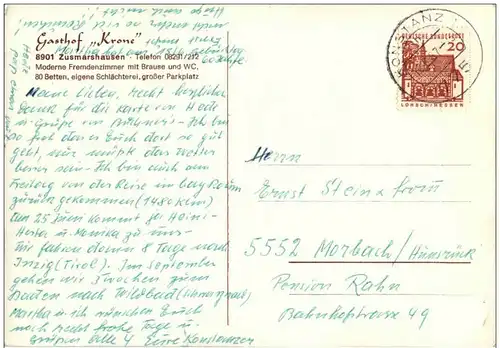 Gasthof „Krone"
8901 Zusmarshausen · Telefon 08291/212
Moderne Fremdenzimmer mit Brause und WC,
80 Betten, eigene Schlächterei, großer Parkplatz
Meine Lieben, recht herzlichen
Dank für die Karte von Heide
u. Grüße von Ich bin
so froh daß es Euch dort so gut
geht, nur müßte das Wetter
besser sein - Ich bin auch am
Freitag von der Reise in Raum
zurück gekommen (1480 Klm)
am 25 Juni kommt ja Heini-
Herta u. Monika zu uns -
Wir fahren dann 8 Tage nach
Inzig (Tirol). Im September
gehen wir 3 Wochen zum
Baden nach Wildbad (Schwarzwald)
Martha u. ich wünschen Euch
noch recht frohe Tage u.
grüßen alle 4 Eure Konstanzer
KONSTANZ
DEUTSCHE BUNDESPOST
20
LORSCH/HESSEN
Herrn
Ernst Stein u. Frau
5552 Morbach/Hunsrück
Pension Rahn
Bahnhofstraße 49